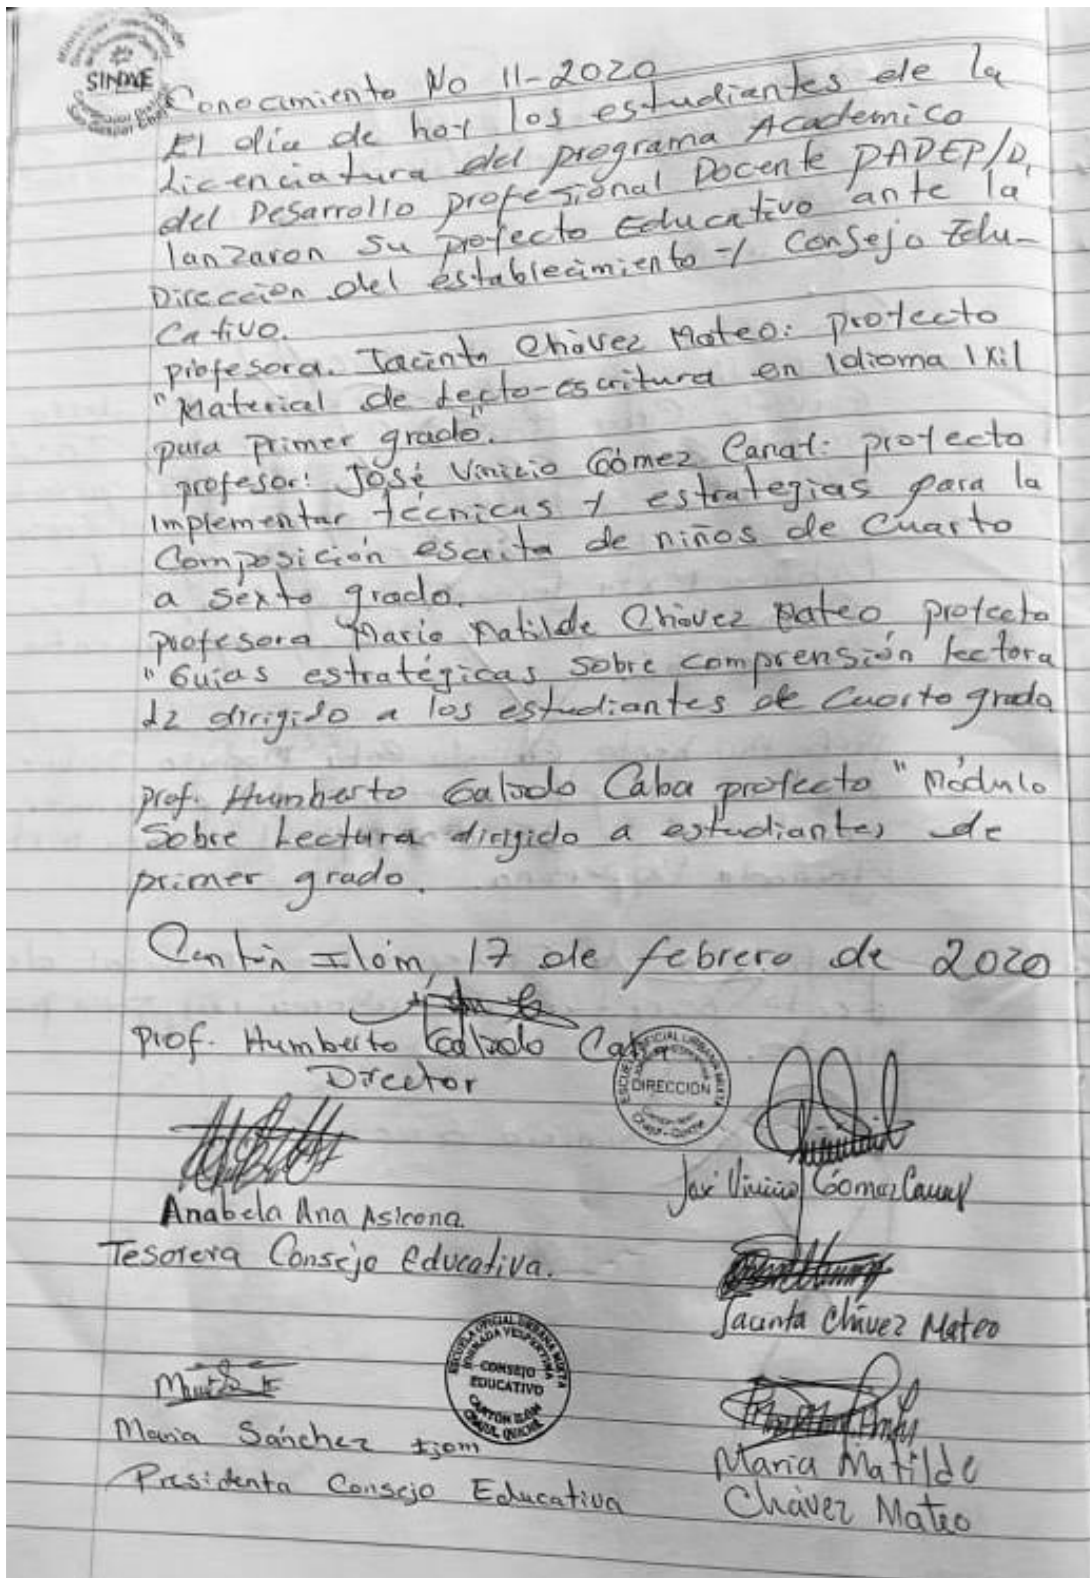 SINAE
Conocimiento No 11-2020
El día de hoy los estudiantes de la
Licenciatura del programa Academico
del Desarrollo profesional Docente PADEP/D,
lanzaron su proyecto Educativo ante la
Dirección del establecimiento y Consejo Edu-
cativo.
profesora. Jacinta Chávez Mateo: proyecto
"Material de Lecto-escritura en Idioma Ixil
para primer grado".
profesor: José Vinicio Gómez Canay: proyecto
implementar técnicas y estrategias para la
Composición escrita de niños de Cuarto
a séxto grado.
profesora María Matilde Chávez Mateo proyecto
"Guías estratégicas sobre comprensión lectora
L2 dirigido a los estudiantes de cuarto grado
prof. Humberto Galindo Caba proyecto "Módulo
Sobre Lectura dirigido a estudiantes de
primer grado.
Cantón Ilóm, 17 de febrero de 2020
prof. Humberto Caba
Director
ESCUELA OFICIAL URBANA MIXTA
DIRECCIÓN
CHAJUL - QUICHÉ
José Vinicio Gómez Canay
Anabela Ana Asicona
Tesorera Consejo Educativa.
Jacinta Chávez Mateo
ESCUELA OFICIAL URBANA MIXTA
JORNADA VESPERTINA
CONSEJO
EDUCATIVO
CANTÓN ILOM
CHAJUL, QUICHÉ
Maria Sánchez Ijom
Presidenta Consejo Educativa
María Matilde
Chávez Mateo